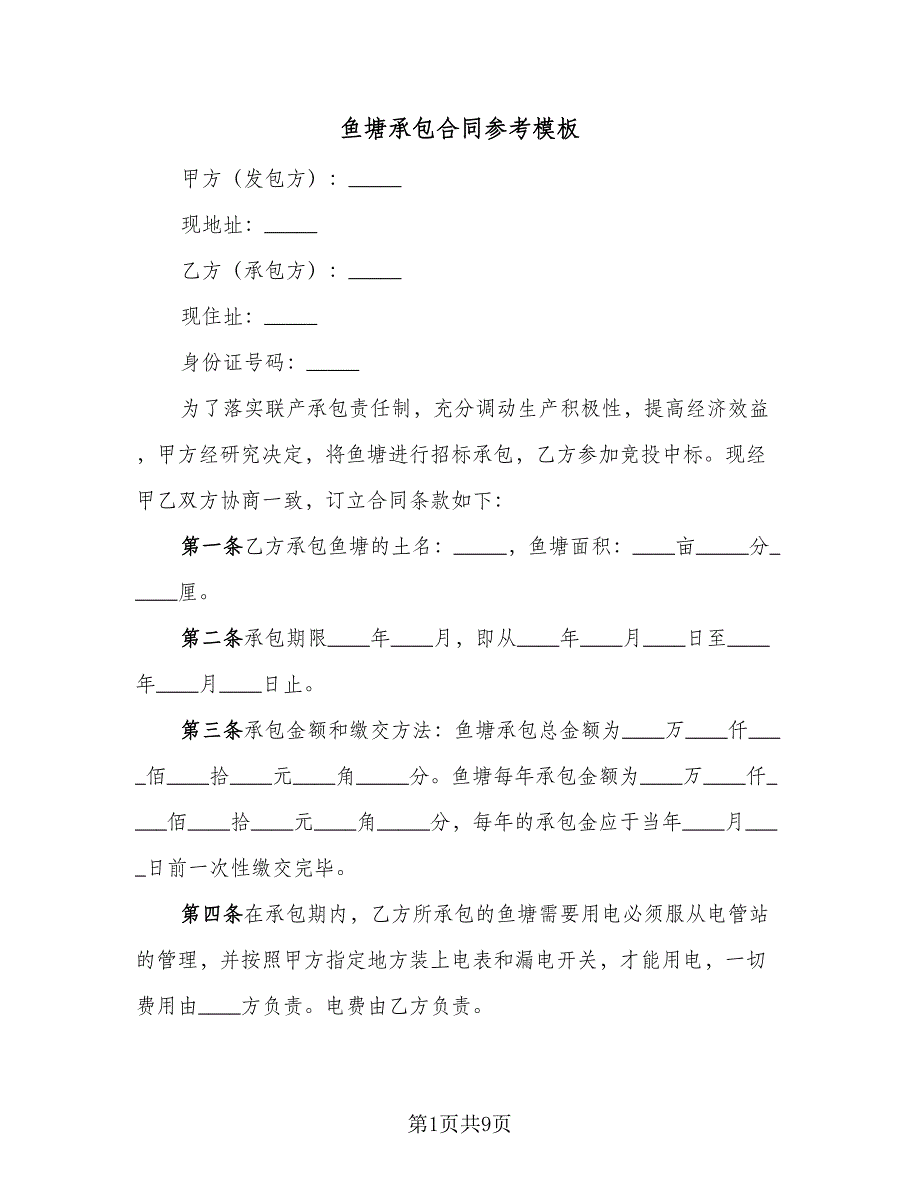 鱼塘承包合同参考模板
甲方（发包方）：_____
现地址：_____
乙方（承包方）：_____
现住址：_____
身份证号码：_____
为了落实联产承包责任制，充分调动生产积极性，提高经济效益
，甲方经研究决定，将鱼塘进行招标承包，乙方参加竞投中标。现经
甲乙双方协商一致，订立合同条款如下：
第一条乙方承包鱼塘的土名：_____，鱼塘面积：____亩_____分_
____厘。
第二条承包期限____年____月，即从____年____月____日至____
年____月____日止。
第三条承包金额和缴交方法：鱼塘承包总金额为____万____仟___
_佰____拾____元____角_____分。鱼塘每年承包金额为____万____仟_
___佰____拾____元____角_____分，每年的承包金应于当年____月___
_日前一次性缴交完毕。
第四条在承包期内，乙方所承包的鱼塘需要用电必须服从电管站
的管理，并按照甲方指定地方装上电表和漏电开关，才能用电，一切
费用由____方负责。电费由乙方负责。
第1页共9页